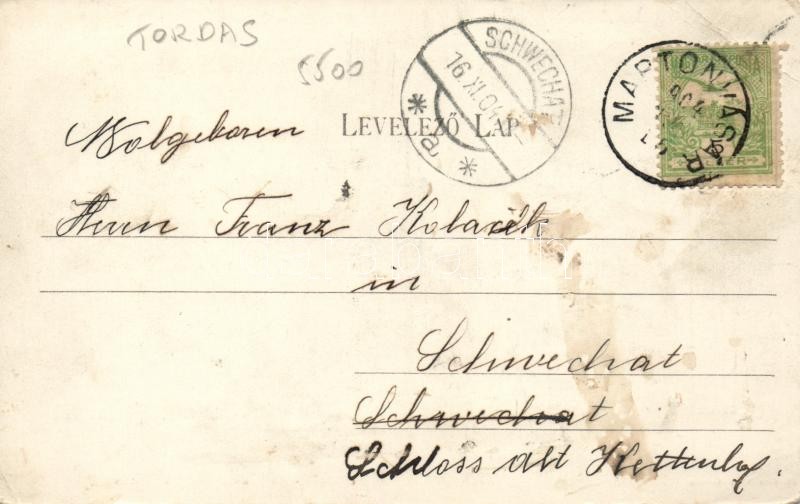 TORDAS
5500
SCHWECHAT
16.XI.04
* a *
MARTONVÁSÁR
904
LEVELEZŐ LAP
Wolgeboren
Herrn Franz Kolaček
in
Schwechat
Schwechat
Schloss alt Kettenhof.